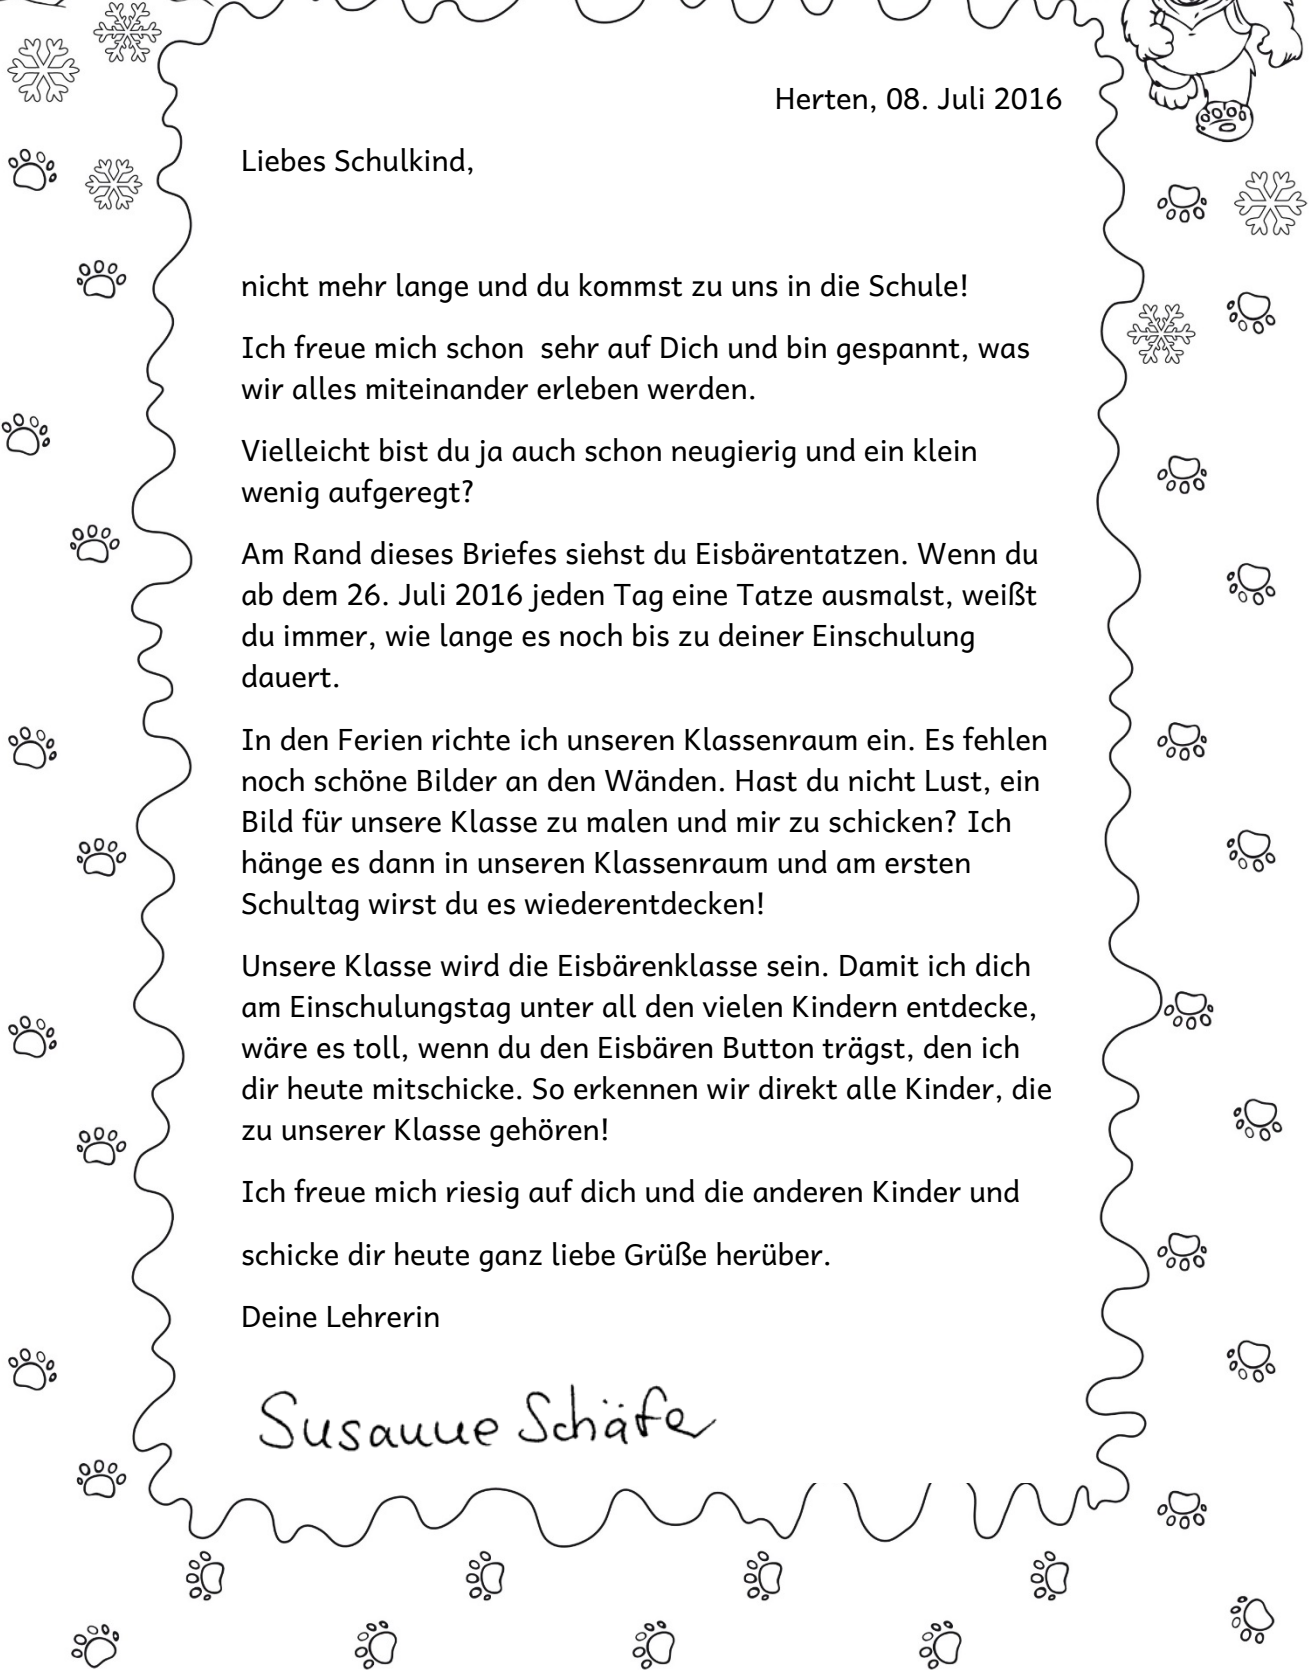 Herten, 08. Juli 2016
Liebes Schulkind,
nicht mehr lange und du kommst zu uns in die Schule!
Ich freue mich schon  sehr auf Dich und bin gespannt, was
wir alles miteinander erleben werden.
Vielleicht bist du ja auch schon neugierig und ein klein
wenig aufgeregt?
Am Rand dieses Briefes siehst du Eisbärentatzen. Wenn du
ab dem 26. Juli 2016 jeden Tag eine Tatze ausmalst, weißt
du immer, wie lange es noch bis zu deiner Einschulung
dauert.
In den Ferien richte ich unseren Klassenraum ein. Es fehlen
noch schöne Bilder an den Wänden. Hast du nicht Lust, ein
Bild für unsere Klasse zu malen und mir zu schicken? Ich
hänge es dann in unseren Klassenraum und am ersten
Schultag wirst du es wiederentdecken!
Unsere Klasse wird die Eisbärenklasse sein. Damit ich dich
am Einschulungstag unter all den vielen Kindern entdecke,
wäre es toll, wenn du den Eisbären Button trägst, den ich
dir heute mitschicke. So erkennen wir direkt alle Kinder, die
zu unserer Klasse gehören!
Ich freue mich riesig auf dich und die anderen Kinder und
schicke dir heute ganz liebe Grüße herüber.
Deine Lehrerin
Susanne Schäfer